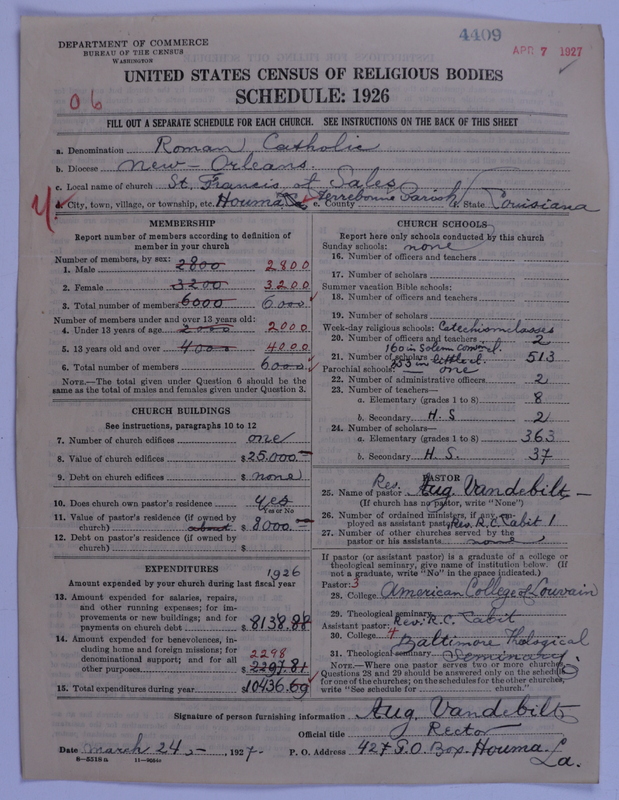 4409
APR 7 1927
DEPARTMENT OF COMMERCE
BUREAU OF THE CENSUS
WASHINGTON
UNITED STATES CENSUS OF RELIGIOUS BODIES
SCHEDULE: 1926
06
FILL OUT A SEPARATE SCHEDULE FOR EACH CHURCH. SEE INSTRUCTIONS ON THE BACK OF THIS SHEET
a. Denomination Roman Catholic
b. Diocese New-Orleans.
c. Local name of church St. Francis of Sales
City, town, village, or township, etc. Houma, La e. County Terrebonne Parish f. State Louisiana
MEMBERSHIP
Report number of members according to definition of
member in your church
Number of members, by sex:
1. Male 2800 2800
2. Female 3200 3200
3. Total number of members 6000 6000
Number of members under and over 13 years old:
4. Under 13 years of age 2000 2000
5. 13 years old and over 4000 4000
6. Total number of members 6000
NOTE.—The total given under Question 6 should be the
same as the total of males and females given under Question 3.
CHURCH BUILDINGS
See instructions, paragraphs 10 to 12
7. Number of church edifices one
8. Value of church edifices $25.000
9. Debt on church edifices $ none
10. Does church own pastor's residence yes
Yes or No
11. Value of pastor's residence (if owned by
church) about $ 8000.
12. Debt on pastor's residence (if owned by
church) $
EXPENDITURES 1926
Amount expended by your church during last fiscal year
13. Amount expended for salaries, repairs,
and other running expenses; for im-
provements or new buildings; and for
payments on church debt $ 8138.88
14. Amount expended for benevolences, in-
cluding home and foreign missions; for
denominational support; and for all 2298
other purposes $ 2297.81
15. Total expenditures during year $10436.69
CHURCH SCHOOLS
Report here only schools conducted by this church
Sunday schools: none
16. Number of officers and teachers
17. Number of scholars
Summer vacation Bible schools:
18. Number of officers and teachers
19. Number of scholars
Week-day religious schools: Catechism classes
20. Number of officers and teachers 2
160 in Solemn
21. Number of scholars 353 in little 513
Parochial schools: one
22. Number of administrative officers 2
23. Number of teachers—
a. Elementary (grades 1 to 8) 8
b. Secondary H. S 2
24. Number of scholars—
a. Elementary (grades 1 to 8) 363
b. Secondary H. S. 37
PASTOR
25. Name of pastor Rev. Aug. Vandebilt
(If church has no pastor, write "None")
26. Number of ordained ministers, if any, em-
ployed as assistant pastor Rev. R.C. Cabit 1
27. Number of other churches served by the
pastor or his assistants none
If pastor (or assistant pastor) is a graduate of a college or
theological seminary, give name of institution below. (If
not a graduate, write "No" in the space indicated.)
Pastor: 3
28. College American College of Louvain
29. Theological seminary
Assistant pastor: Rev. R.C. Cabit
30. College 4 Baltimore Theological
31. Theological seminary Seminary
NOTE.—Where one pastor served two or more churches,
Questions 28 and 29 should be answered only on the schedule
for one of the churches; on the schedules for the other churches,
write "See schedule for church."
Signature of person furnishing information Aug. Vandebilt
Official title Rector
Date March 24, 1927. P. O. Address 427 P.O. Box. Houma. La.
8—5318 a